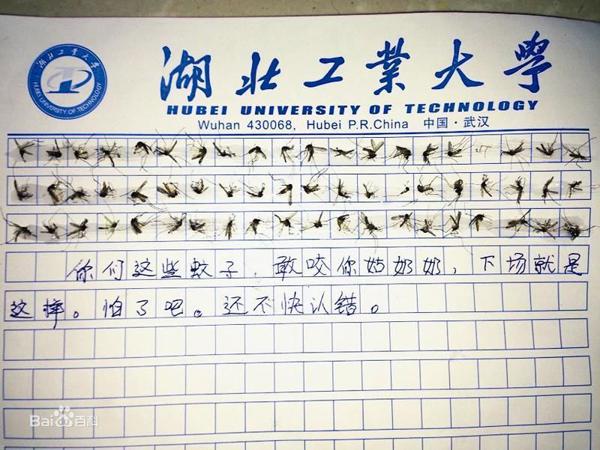 湖北工業大學
HUBEI UNIVERSITY OF TECHNOLOGY
Wuhan 430068, Hubei P.R.China 中国·武汉
湖北工業大學
HUBEI UNIVERSITY OF TECHNOLOGY
你们这些蚊子，敢咬你姑奶奶，下场就是
这样。怕了吧。还不快认错。
Baidu百科